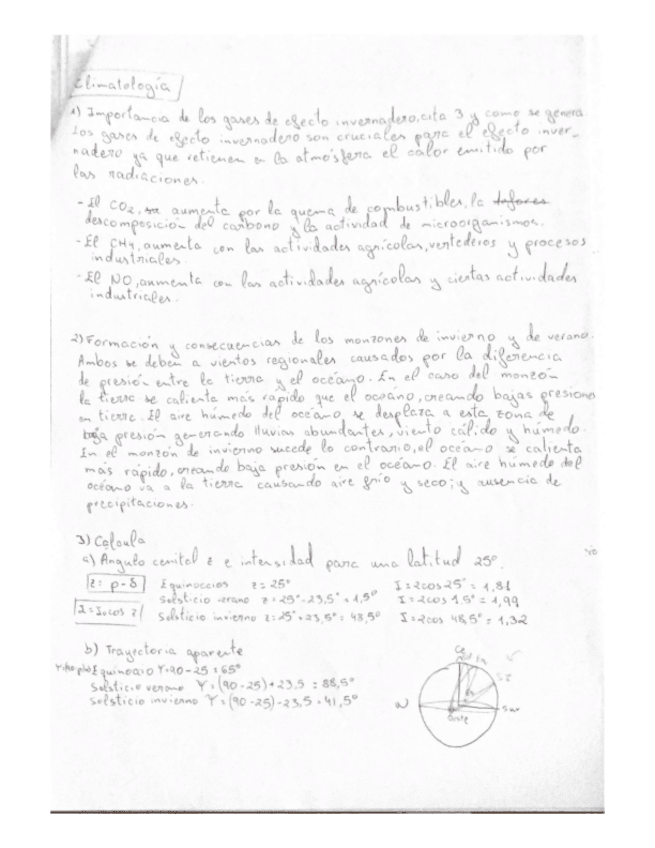 Climatología
1) Importancia de los gases de efecto invernadero, cita 3 y como se genera
Los gases de efecto invernadero son cruciales para el efecto inver-
nadero ya que retienen en la atmósfera el calor emitido por
las radiaciones.
- El CO2, aumenta por la quema de combustibles, la
descomposición del carbono y la actividad de microorganismos.
- El CH4, aumenta con las actividades agrícolas, vertederos y procesos
industriales.
- El NO, aumenta con las actividades agrícolas y ciertas actividades
industriales.
2) Formación y consecuencias de los monzones de invierno y de verano.
Ambos se deben a vientos regionales causados por la diferencia
de presión entre la tierra y el océano. En el caso del monzón
la tierra se calienta más rápido que el océano, creando bajas presiones
en tierra. El aire húmedo del océano se desplaza a esta zona de
baja presión generando lluvias abundantes, viento cálido y húmedo.
En el monzón de invierno sucede lo contrario, el océano se calienta
más rápido, creando baja presión en el océano. El aire húmedo del
océano va a la tierra causando aire frío y seco; y ausencia de
precipitaciones.
3) Calcula
a) Angulo cenital z e intensidad para una latitud 25º.
z = p - δ Equinoccios z = 25° I = 2cos 25° = 1,81
Solsticio verano z = 25° - 23,5° = 1,5° I = 2cos 1,5° = 1,99
I = I₀ cos z Solsticio invierno z = 25° + 23,5° = 48,5° I = 2cos 48,5° = 1,32
b) Trayectoria aparente
Equinoccio γ = 90 - 25 = 65°
Solsticio verano γ = (90 - 25) + 23,5 = 88,5°
Solsticio invierno γ = (90 - 25) - 23,5 = 41,5°
Ce
N
Sur
Oeste